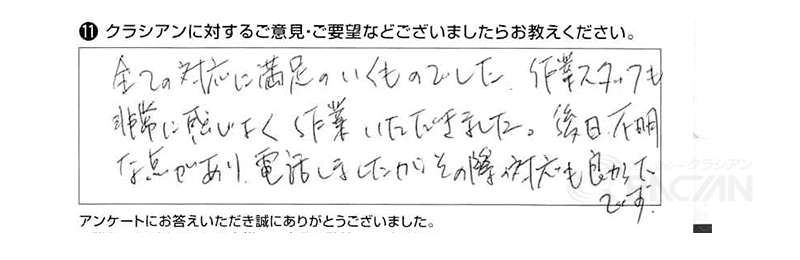 ⓫ クラシアンに対するご意見・ご要望などございましたらお教えください。
全ての対応に満足のいくものでした。作業スタッフも
非常に感じよく作業いただきました。後日、不明
な点があり、電話しましたがその際の対応も良かった
です。
アンケートにお答えいただき誠にありがとうございました。
クラシアン